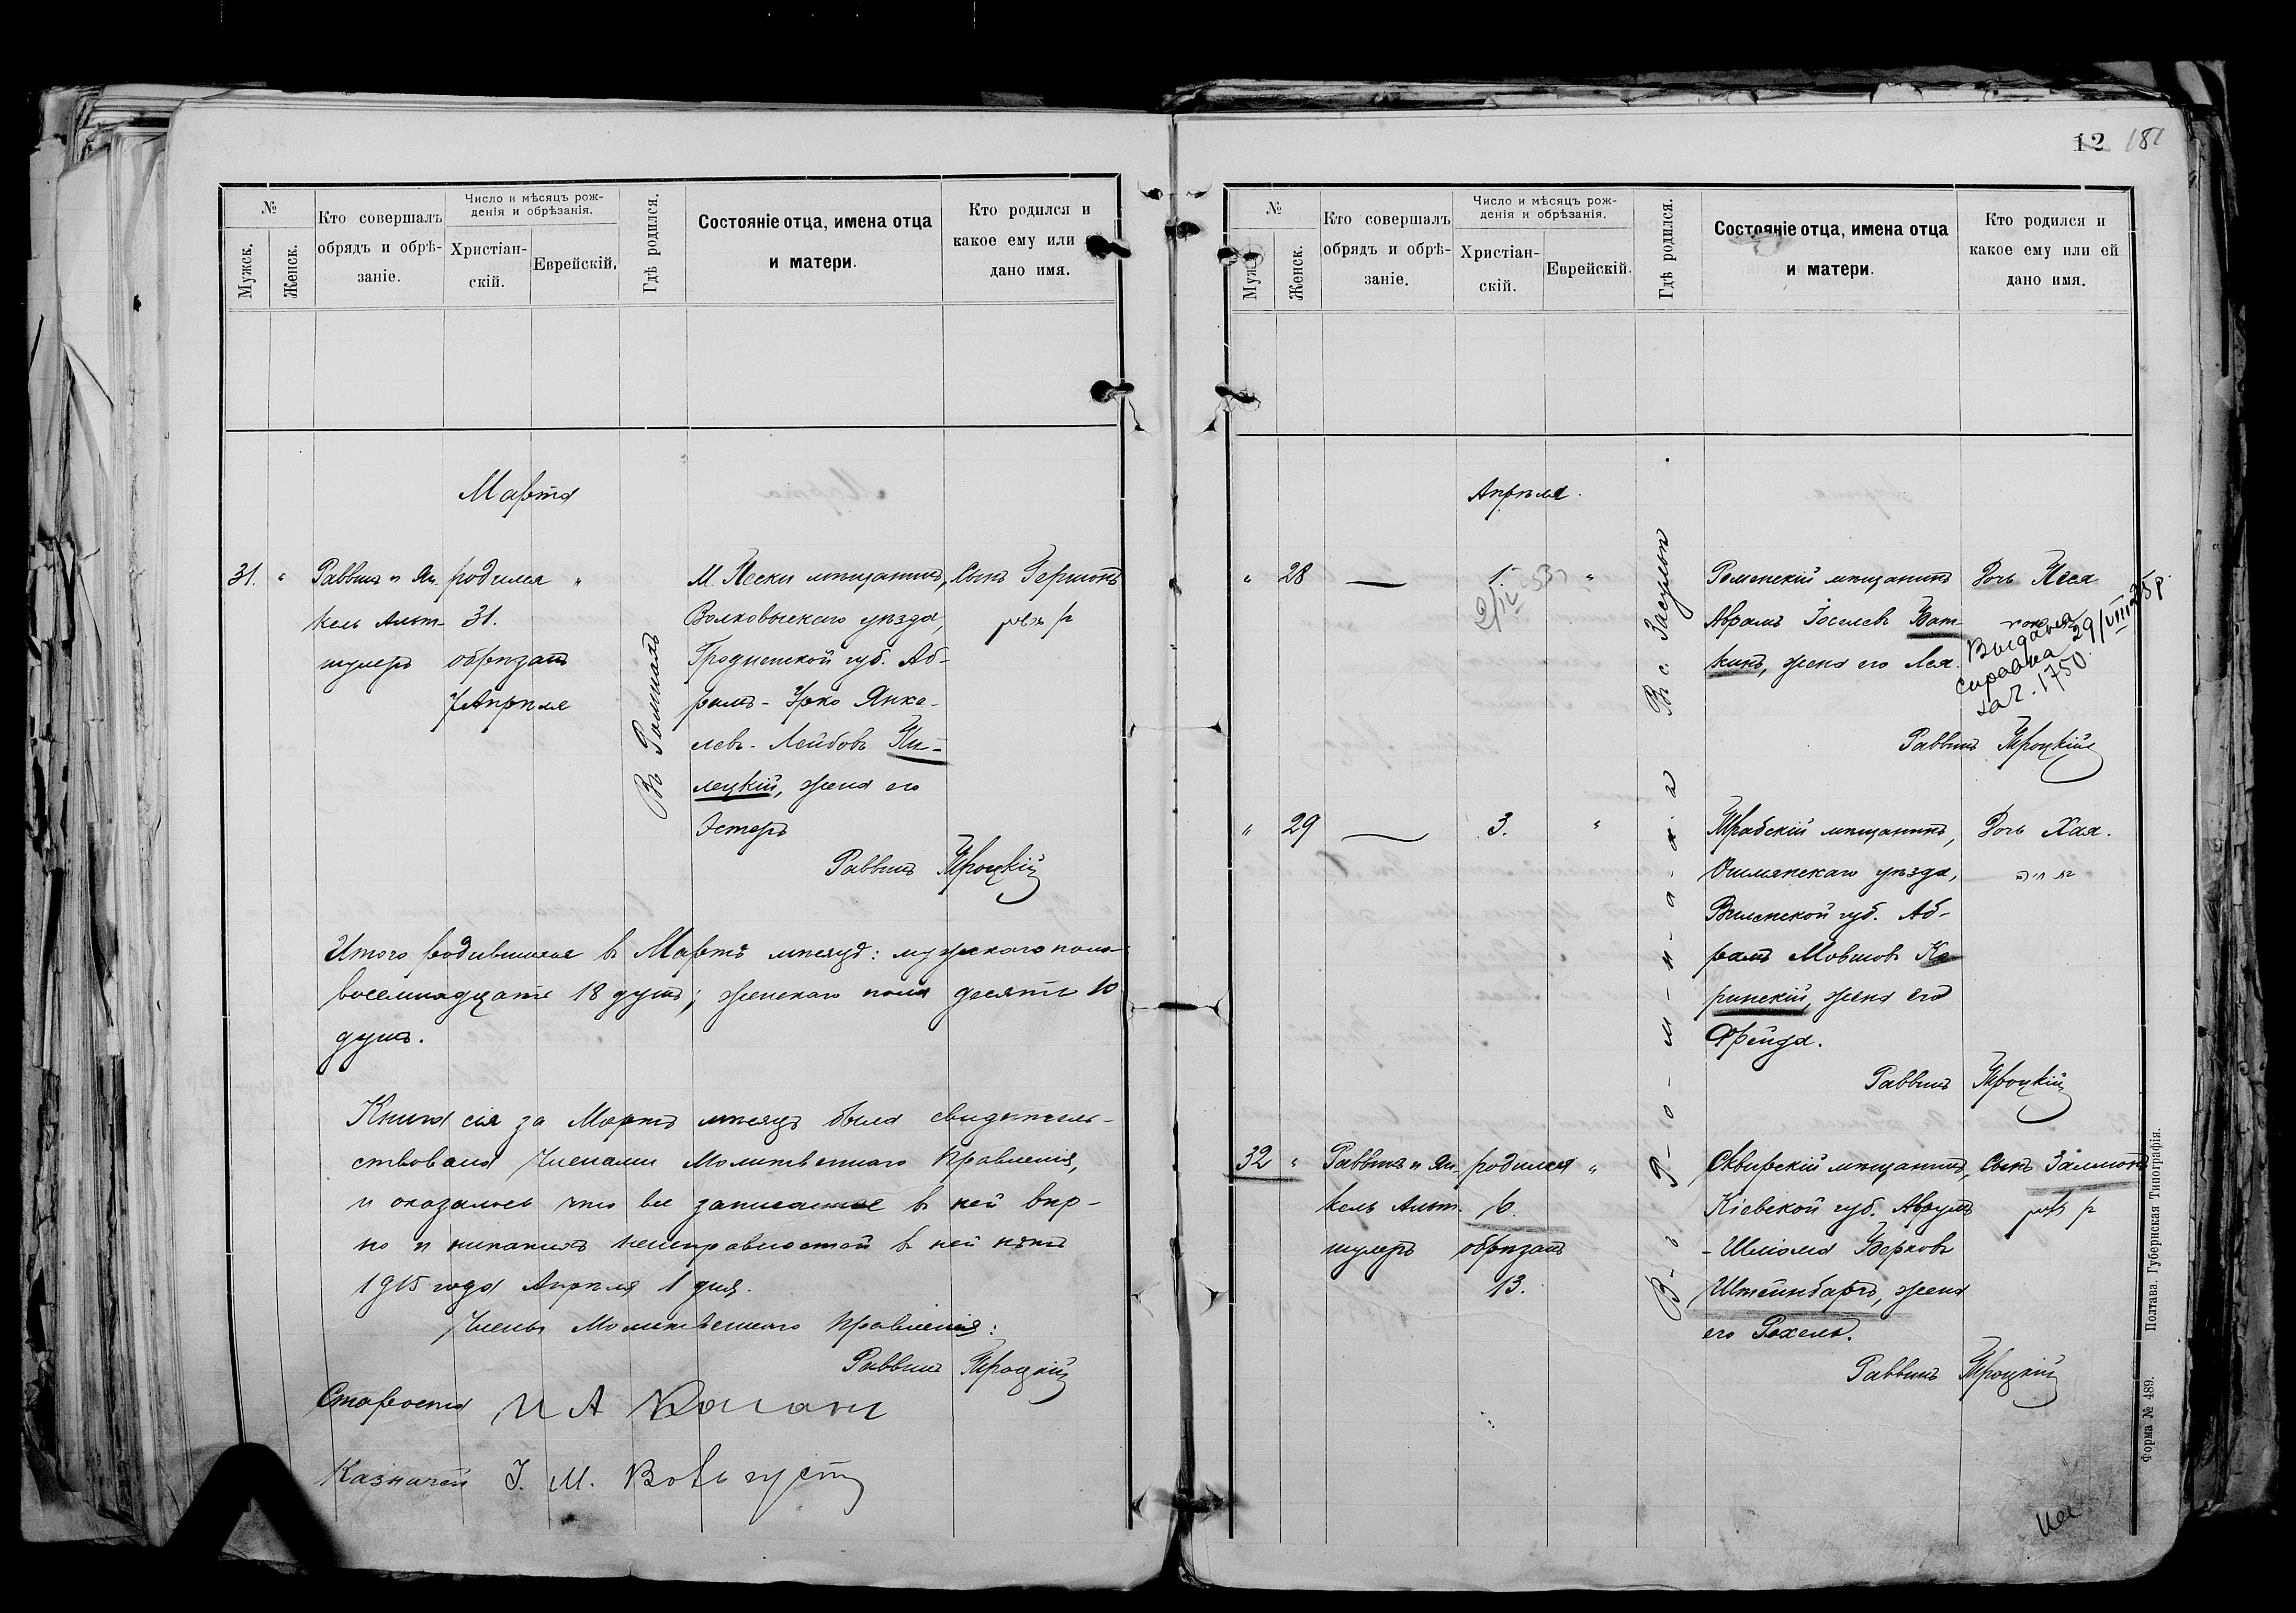 №
Мужск.
Женск.
Кто совершалъ
обрядъ и обрѣ-
заніе.
Число и мѣсяцъ рож-
денія и обрѣзанія.
Христіан-
скій.
Еврейскій.
Гдѣ родился.
Состояніе отца, имена отца
и матери.
Кто родился и
какое ему или
дано имя.
Марта
31. "
Раввинъ и Ян-
кель Альт-
шулеръ
родился "
31.
обрѣзанъ
7 Апрѣля
Въ Ромнахъ
М. Пески мѣщанинъ,
Волковыскаго уѣзда,
Гродненской губ. Аб-
рамъ-Эрко Янке-
левъ-Лейбовъ
лецкій, жена его
Эстеръ
Сынъ Гершонъ
Раввинъ Троцкій
Итого родившихся въ Мартѣ мѣсяцѣ: мужскаго пола
восемнадцать 18 душъ; женскаго пола десять 10
душъ.
Книга сія за Мартъ мѣсяцъ была свидѣтель-
ствована Членами Молитвеннаго Правленія,
и оказалось что все записанное въ ней вѣр-
но и никакихъ неисправностей въ ней нѣтъ
1915 года Апрѣля 1 дня.
Члены Молитвеннаго Правленія:
Раввинъ Троцкій
Староста
Казначей І. М.
12 181
№
Муж
Женск.
Кто совершалъ
обрядъ и обрѣ-
заніе.
Число и мѣсяцъ рож-
денія и обрѣзанія.
Христіан-
скій.
Еврейскій.
Гдѣ родился.
Состояніе отца, имена отца
и матери.
Кто родился и
какое ему или ей
дано имя.
Апрѣля.
" 28
1. "
2/IV
Въ с. Засульѣ
Роменскій мѣщанинъ
Аврамъ Іоселевъ Бат-
кинъ, жена его Лея.
Дочь Песя
Видана
справка 29/VIII 25 р
за ч. 1750.
Раввинъ Троцкій
" 29
3. "
Трабскій мѣщанинъ,
Ошмянскаго уѣзда,
Виленской губ. Аб-
рамъ Мовшовъ Ка-
ринскій, жена его
Фрейда.
Дочь Хая.
חיה
Раввинъ Троцкій
32 "
Раввинъ и Ян-
кель Альт-
шулеръ
родился "
6.
обрѣзанъ
13.
В-ъ Р-о-м-н-а-х-ъ
Сквирскій мѣщанинъ,
Кіевской губ. Аврумъ
-Шліома Берковъ
Штейнбаргъ, жена
его Рохель.
Сынъ Залмонъ
Раввинъ Троцкій
Форма № 489. Полтава. Губернская Типографія.